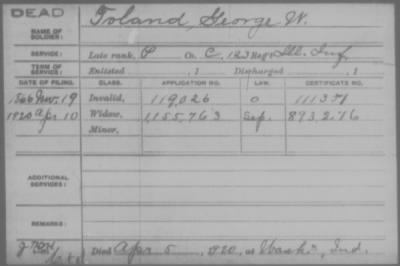 DEAD
NAME OF SOLDIER: Toland, George W.
SERVICE: Late rank, P Co. C, 123 Reg't Ill. Inf.
TERM OF SERVICE: Enlisted , 1 Discharged , 1
DATE OF FILING. CLASS. APPLICATION NO. LAW. CERTIFICATE NO.
Nov. 19 Invalid, 119,026 0 111351
1920 Apr 10 Widow, 1155,763 Sep. 893,276
Minor,
ADDITIONAL SERVICES:
REMARKS:
Died Apr 5, 1920, at Wash., Ind.